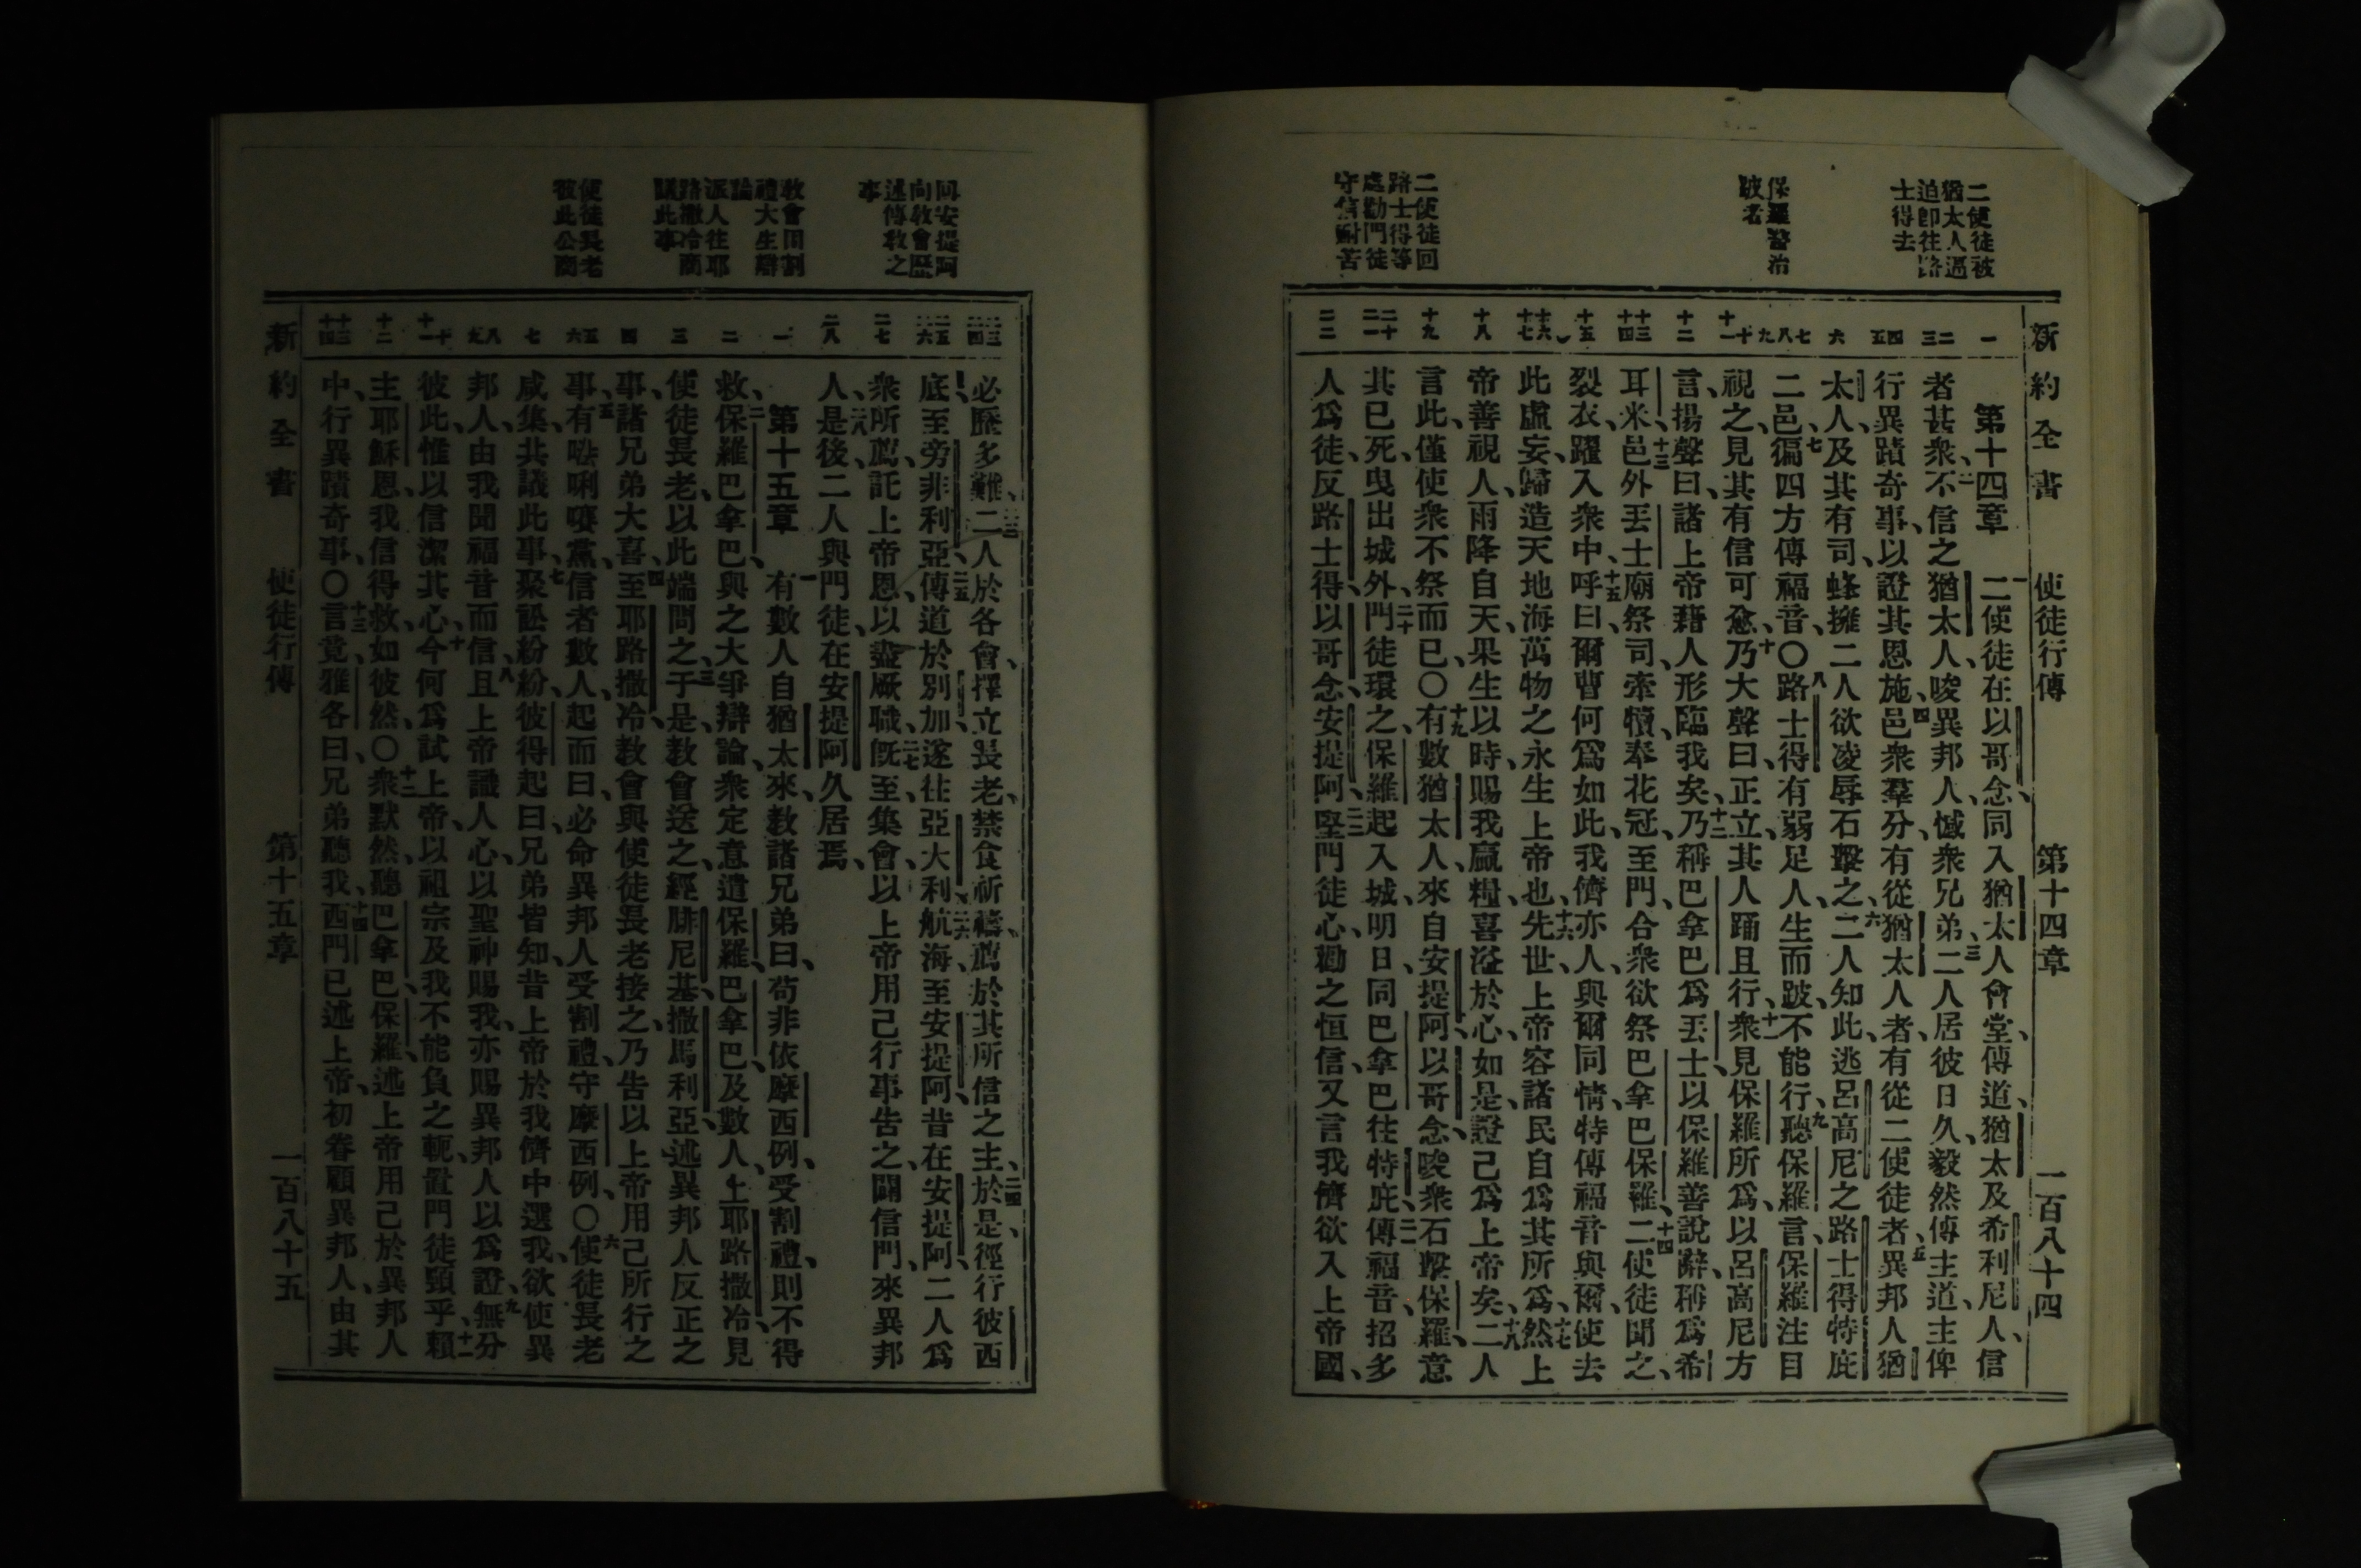 新約全書 使徒行傳 第十四章 一百八十四
二使徒被
猶太人逼
迫卽往路
士得去
保羅醫治
跛者
二使徒回
路士得等
處勸門徒
守信耐苦
第十四章 一二使徒在以哥念、同入猶太人會堂、傳道、猶太及希利尼人、信
者甚衆、二不信之猶太人、唆異邦人、憾衆兄弟、三二人居彼日久、毅然傳主道、主俾
行異蹟奇事、以證其恩施、四邑衆羣分、有從猶太人者、有從二使徒者、五異邦人猶
太人、及其有司、蜂擁二人欲凌辱石擊之、六二人知此、逃呂高尼之路士得特庇
二邑、七徧四方傳福音、〇八路士得有弱足人、生而跛、不能行、九聽保羅言、保羅注目
視之、見其有信可愈、十乃大聲曰、正立、其人踊且行、十一衆見保羅所爲、以呂高尼方
言、揚聲曰、諸上帝藉人形臨我矣、十二乃稱巴拿巴爲丟士、以保羅善說辭、稱爲希
耳米、十三邑外丟士廟祭司、牽犢、奉花冠、至門、合衆欲祭巴拿巴保羅、十四二使徒聞之、
裂衣、躍入衆中、十五呼曰、爾曹何爲如此、我儕亦人、與爾同情、特傳福音與爾、使去
此虛妄、歸造天地海萬物之永生上帝也、十六先世、上帝容諸民自爲其所爲、十七然上
帝善視人、雨降自天、果生以時、賜我贏糧、喜溢於心、如是、證己爲上帝矣、十八二人
言此、僅使衆不祭而已、〇十九有數猶太人、來自安提阿、以哥念、唆衆石擊保羅、意
其已死、曳出城外、二十門徒環之、保羅起入城、明日、同巴拿巴往特庇、二一傳福音、招多
人爲徒、反路士得、以哥念、安提阿、二二堅門徒心、勸之恒信、又言我儕欲入上帝國、
一
二三
四五
六
七八九
十十一
十二
十三十四
十五
十六十七
十八
十九
二十二一
二二
回安提阿
向敎會歷
述傳敎之
事
敎會因割
禮大生辯
論
派人往耶
路撒冷商
議此事
使徒長老
彼此公商
必歷多難、二三二人於各會、擇立長老、禁食祈禱、薦於其所信之主、二四於是、徑行彼西
底、至旁非利亞、二五傳道於別加、遂往亞大利、二六航海、至安提阿、昔在安提阿、二人爲
衆所薦、託上帝恩、以盡厥職、二七旣至、集會、以上帝用己行事告之、闢信門、來異邦
人、二八是後、二人與門徒、在安提阿久居焉、
第十五章 一有數人自猶太來、敎諸兄弟曰、苟非依摩西例、受割禮、則不得
救、二保羅巴拿巴、與之大爭辯論、衆定意遣保羅、巴拿巴、及數人、上耶路撒冷、見
使徒長老、以此端問之、三于是、敎會送之、經腓尼基、撒馬利亞、述異邦人反正之
事、諸兄弟大喜、四至耶路撒冷、敎會與使徒長老接之、乃告以上帝用己所行之
事、五有𠵽唎㗲黨、信者數人、起而曰、必命異邦人受割禮、守摩西例、〇六使徒長老
咸集、共議此事、七聚訟紛紛、彼得起曰、兄弟皆知、昔上帝於我儕中選我、欲使異
邦人、由我聞福音而信、八且上帝識人心、以聖神賜我、亦賜異邦人以爲證、九無分
彼此、惟以信潔其心、十今何爲試上帝、以祖宗及我不能負之軛、置門徒頸乎、十一賴
主耶穌恩、我信得救、如彼然、〇十二衆默然、聽巴拿巴、保羅、述上帝用己於異邦人
中、行異蹟奇事、〇十三言竟、雅各曰、兄弟聽我、十四西門已述上帝、初眷顧異邦人、由其
二三二四
二五二六
二七
二八
一
二
三
四
五六
七
八九
十十一
十二
十三十四
新約全書 使徒行傳 第十五章 一百八十五